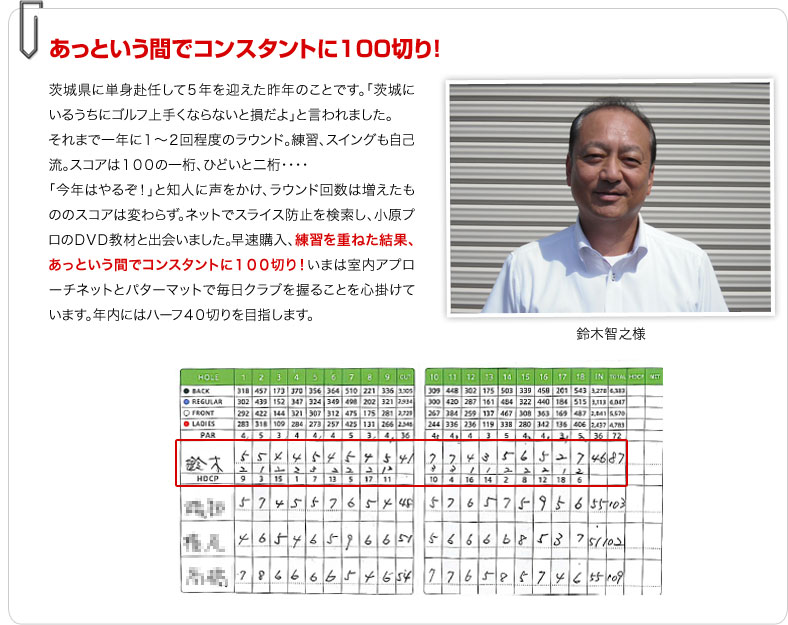 あっという間でコンスタントに100切り!
茨城県に単身赴任して5年を迎えた昨年のことです。「茨城に
いるうちにゴルフ上手くならないと損だよ」と言われました。
それまで一年に1～2回程度のラウンド。練習、スイングも自己
流。スコアは100の一桁、ひどいと二桁‥‥
「今年はやるぞ!」と知人に声をかけ、ラウンド回数は増えたも
ののスコアは変わらず。ネットでスライス防止を検索し、小原プ
ロのDVD教材と出会いました。早速購入、練習を重ねた結果、
あっという間でコンスタントに100切り!いまは室内アプロ
ーチネットとパターマットで毎日クラブを握ることを心掛けて
います。年内にはハーフ40切りを目指します。
鈴木智之様
HOLE 1 2 3 4 5 6 7 8 9 OUT 10 11 12 13 14 15 16 17 18 IN TOTAL HDCP NET
BACK 318 457 173 370 356 364 510 221 336 3,105 309 448 302 175 503 339 458 201 543 3,278 6,383
REGULAR 302 439 152 347 324 349 498 202 321 2,934 300 420 287 161 484 322 440 184 515 3,113 6,047
FRONT 292 422 144 321 307 312 475 175 281 2,729 267 384 259 137 467 308 363 169 487 2,841 5,570
LADIES 283 318 109 284 273 257 425 131 266 2,346 244 336 236 119 338 280 342 136 406 2,437 4,783
PAR 4 5 3 4 4 4 5 3 4 36 4 4 4 3 5 4 4 3 5 36 72
鈴木 5 5 4 4 5 4 5 4 5 41 7 7 4 3 5 6 5 2 7 46 87
HDCP 9 3 15 1 7 13 5 17 11 10 4 16 14 2 8 12 18 6
5 7 4 5 5 7 6 5 4 48 5 7 6 5 7 5 9 5 6 55 103
4 6 5 4 6 5 9 6 6 51 5 6 6 6 6 8 5 3 7 51 102
7 8 6 6 6 6 5 4 6 54 7 7 6 5 8 5 7 4 6 55 109